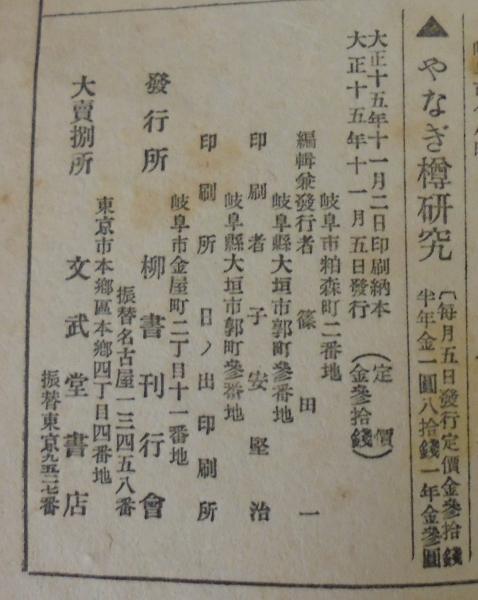 ▲やなぎ樽研究
〔每月五日發行定價金參拾錢
半年金一圓八拾錢一年金參圓
大正十五年十一月二日印刷納本
大正十五年十一月五日發行
(定價)
(金參拾錢)
岐阜市粕森町二番地
編輯兼發行者 篠田一
岐阜縣大垣市郭町參番地
印刷者 子安堅治
岐阜縣大垣市郭町參番地
印刷所 日ノ出印刷所
岐阜市金屋町二丁目十一番地
發行所 柳書刊行會
振替名古屋一三四五八番
東京市本鄉區本鄉四丁目四番地
大賣捌所 文武堂書店
振替東京九五二七番